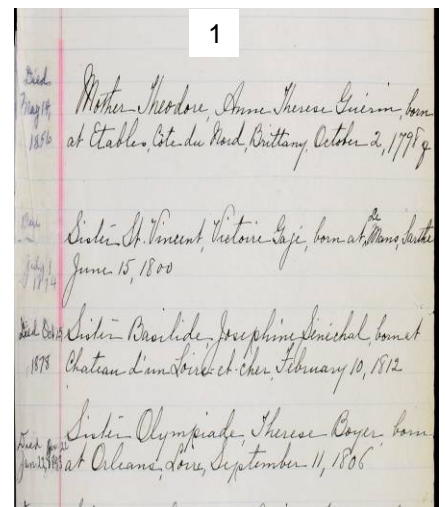 1
Died
May 14,
1856
Mother Theodore, Anne Therese Guérin, born
at Etables, Côte du Nord, Brittany, October 2, 1798
Died
July
1874
Sister St. Vincent, Victoire Gagé, born at Le Mans, Sarthe
June 15, 1800
Died Oct
1878
Sister Basilide, Josephine Sénéchal, born at
Chateau d'un Loire-et-cher, February 10, 1812
Died
Sister Olympiade, Therese Boyer, born
at Orleans, Loire, September 11, 1806